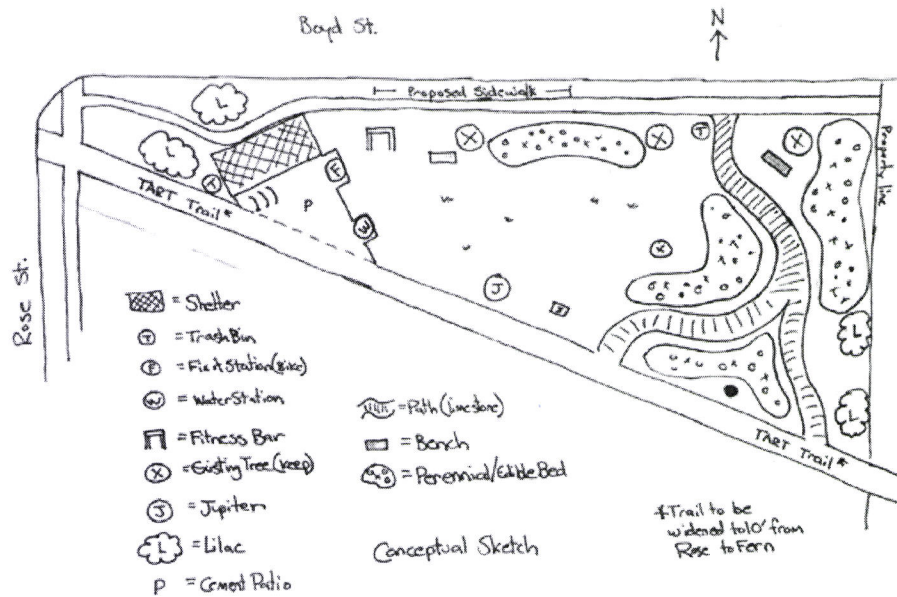 Boyd St.
N
Proposed Sidewalk
L
L
T
F
P
W
X
X
T
X
Property line
TART Trail*
X
J
L
L
TART Trail*
Rose St.
= Shelter
T = Trash Bin
F = Fix it Station (Bike)
W = Water Station
= Fitness Bar
X = Existing Tree (keep)
J = Jupiter
L = Lilac
P = Cement Patio
= Path (limestone)
= Bench
= Perennial/Edible Bed
Conceptual Sketch
*Trail to be
widened to 10' from
Rose to Fern